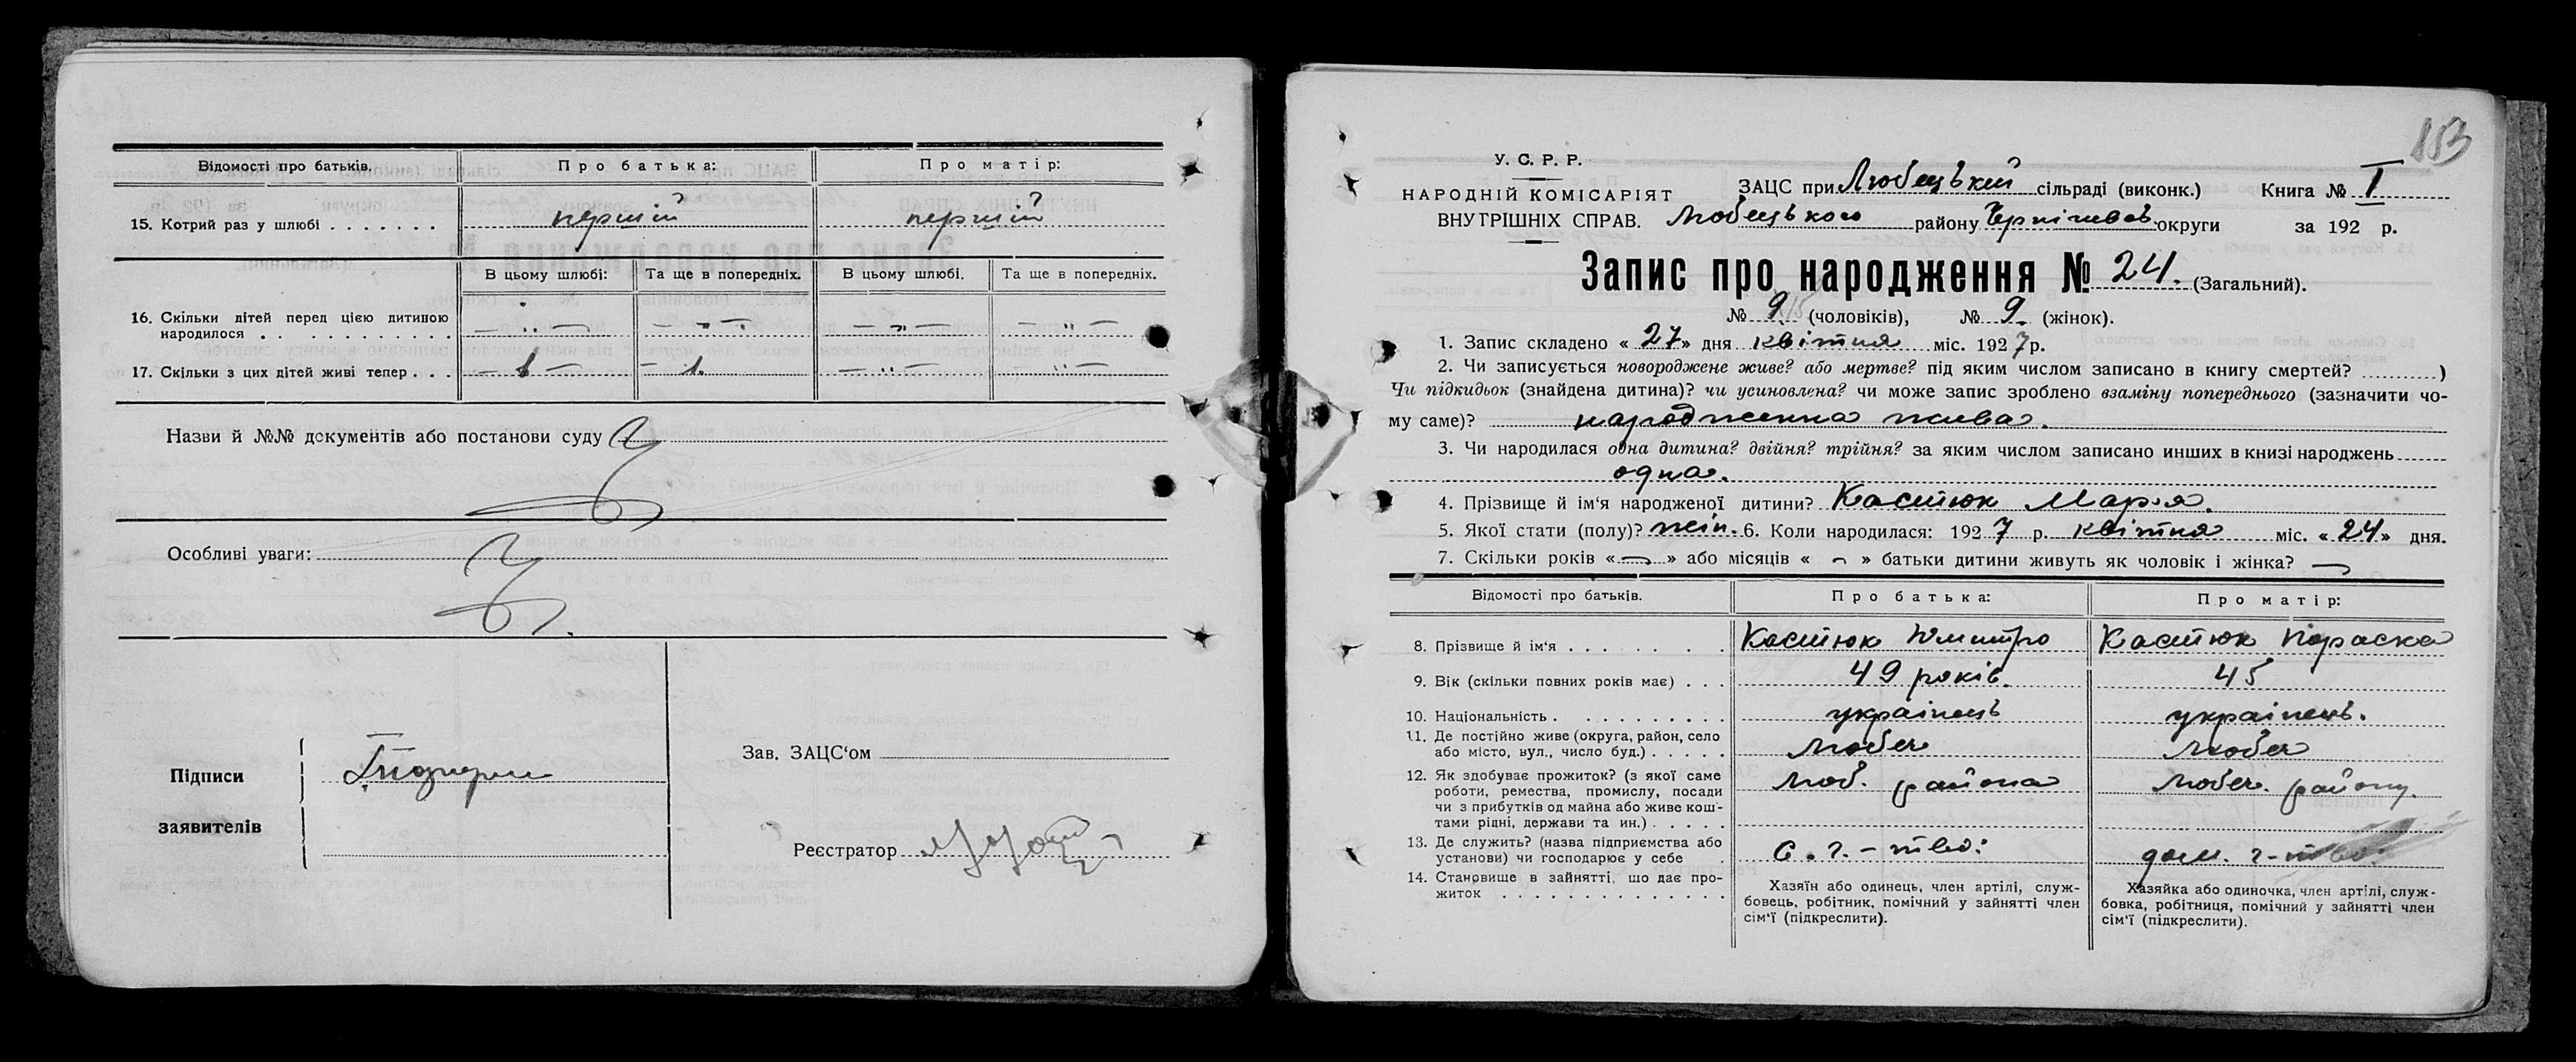 Відомості про батьків. Про батька: Про матір:
15. Котрий раз у шлюбі . . . . . . . першій першій
В цьому шлюбі: Та ще в попередніх. В цьому шлюбі. Та ще в попередніх.
16. Скільки дітей перед цією дитиною
народилося . . . . . . . . . . . — „ — — „ — — „ — — „ —
17. Скільки з цих дітей живі тепер . . . — 1 — — 1. — „ — — „ —
Назви й №№ документів або постанови суду
Особливі уваги:
Підписи
заявителів
Зав. ЗАЦС‘ом
Реєстратор
153
У. С. Р. Р.
НАРОДНІЙ КОМІСАРІЯТ
ВНУТРІШНІХ СПРАВ.
ЗАЦС при Любецькій сільраді (виконк.) Книга № I
Любецького району Чернігівськ округи за 192 р.
Запис про народження № 24. (Загальний).
№ 9 15 (чоловіків), № 9. (жінок).
1. Запис складено « 27 » дня квітня міс. 1927 р.
2. Чи записується новороджене живе? або мертве? під яким числом записано в книгу смертей? )
Чи підкидьок (знайдена дитина)? чи усиновлена? чи може запис зроблено взаміну попереднього (зазначити чо-
му саме)? народженна жива.
3. Чи народилася одна дитина? двійня? трійня? за яким числом записано инших в книзі народжень
одна.
4. Прізвище й ім‘я народженої дитини? Костюк Марія.
5. Якої стати (полу)? жін. 6. Коли народилася: 1927 р. квітня міс. « 24 » дня.
7. Скільки років « — » або місяців « — » батьки дитини живуть як чоловік і жінка? —
Відомості про батьків. Про батька: Про матір:
8. Прізвище й ім‘я . . . . . . . Костюк Дмитро Костюк Параска
9. Вік (скільки повних років має) . . . 49 років. 45
10. Національність . . . . . . . . . . українець українець.
11. Де постійно живе (округа, район, село
або місто, вул., число буд.) . . . . . Любеч Любеч
12. Як здобуває прожиток? (з якої саме
роботи, ремества, промислу, посади Люб. района Любеч. району.
чи з прибутків од майна або живе кош-
тами рідні, держави та ин.) . . . . .
13. Де служить? (назва підприємства або
установи) чи господарює у себе . с. г. – тво: дом. г-тво:
14. Становище в зайнятті, що дає про-
житок . . . . . . . . . . . . . .
Хазяїн або одинець, член артілі, служ-
бовець, робітник, помічний у зайнятті член
сім‘ї (підкреслити).
Хазяйка або одиночка, член артілі, служ-
бовка, робітниця, помічний у зайнятті член
сім‘ї (підкреслити).